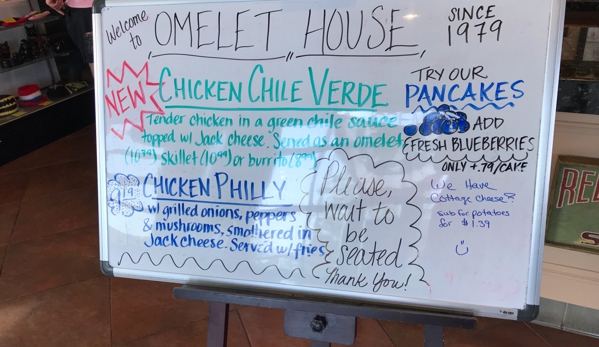 Welcome to
OMELET HOUSE
SINCE
1979
NEW
CHICKEN CHILE VERDE
Tender chicken in a green chile sauce
topped w/ Jack cheese. Served as an omelet
skillet or burrito
CHICKEN PHILLY
w/ grilled onions, peppers
& mushrooms, smothered in
Jack cheese. Served w/ fries
Please,
wait to
be
seated
Thank You!
TRY OUR
PANCAKES
ADD
FRESH BLUEBERRIES
ONLY +.79/CAKE
We Have
Cottage Cheese!
sub for potatoes
for $1.39